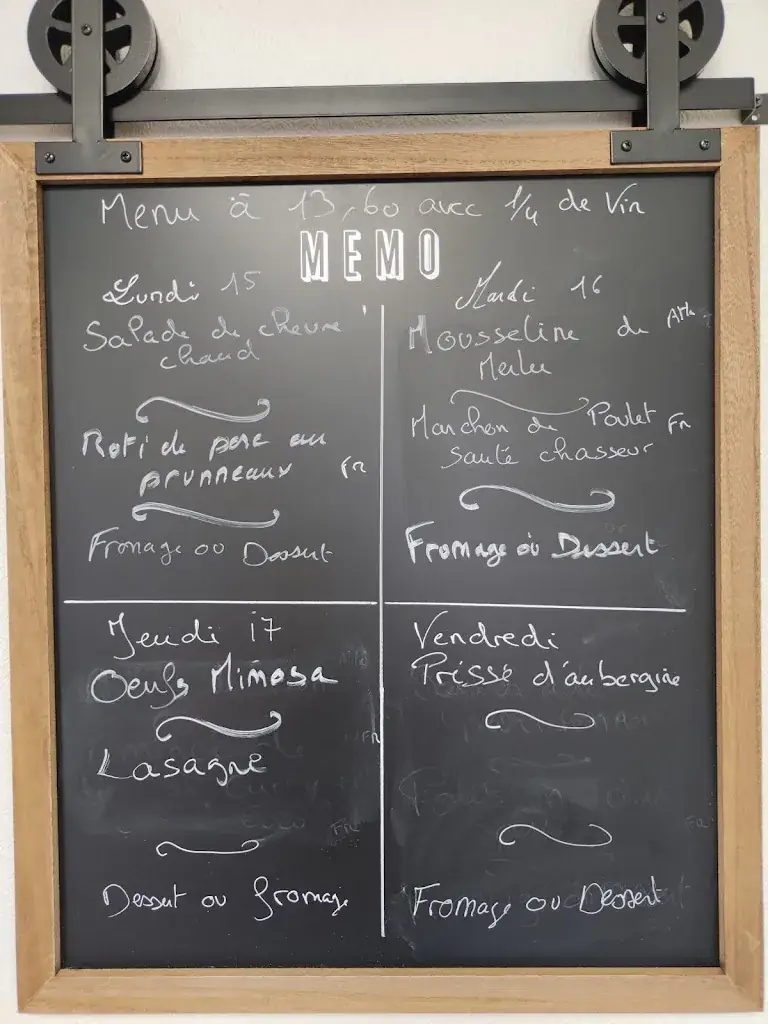 Menu à 13,60 avec 1/4 de Vin
MEMO
Lundi 15
Salade de chevre
chaud
Roti de porc au
prunneaux FR
Fromage ou Dessert
Mardi 16
Mousseline de
Merlu
Manchon de Poulet FR
Sauté chasseur
Fromage ou Dessert
Jeudi 17
Oeufs Mimosa
FR
Lasagne
Dessert ou fromage
Vendredi
Prissé d'aubergine
Fromage ou Dessert